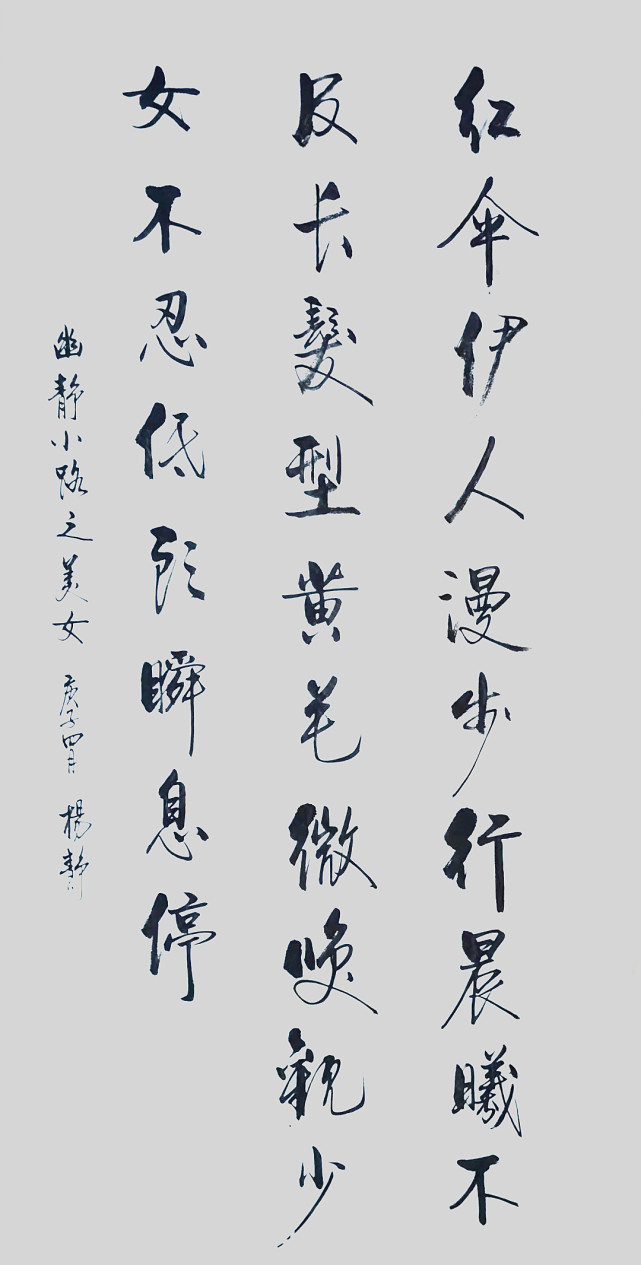 红伞伊人漫步行晨曦不
及长髮型黄毛微唤观少
女不忍低头瞬息停
幽静小路之美女 庚子四月 杨静